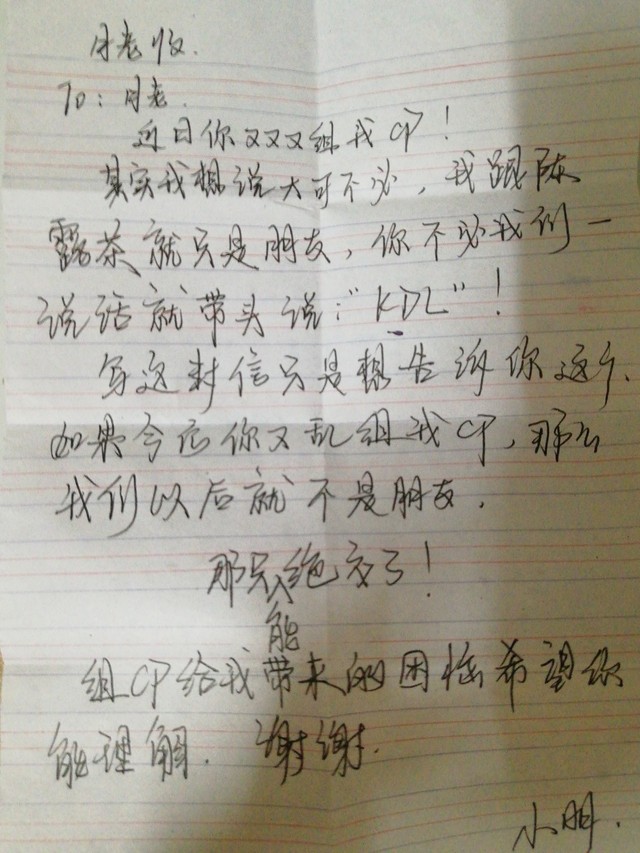 月老收.
To：月老.
近日你又又又组我CP！
其实我想说大可不必，我跟陈
露茶就只是朋友，你不必我们一
说话就带头说："KDL"！
写这封信只是想告诉你这个.
如果今后你又乱组我CP，那么
我们以后就不是朋友.
那只能绝交了！
组CP给我带来的困恼希望你
能理解. 谢谢.
小明.